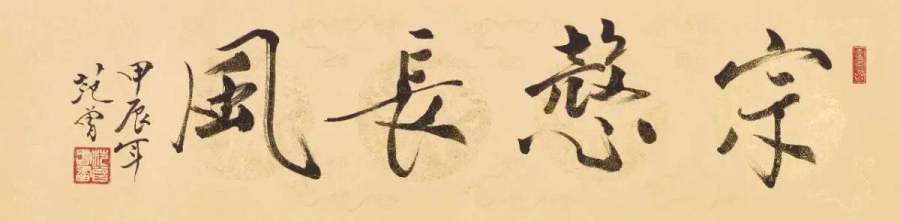 宗愨長風
甲辰年
范曾